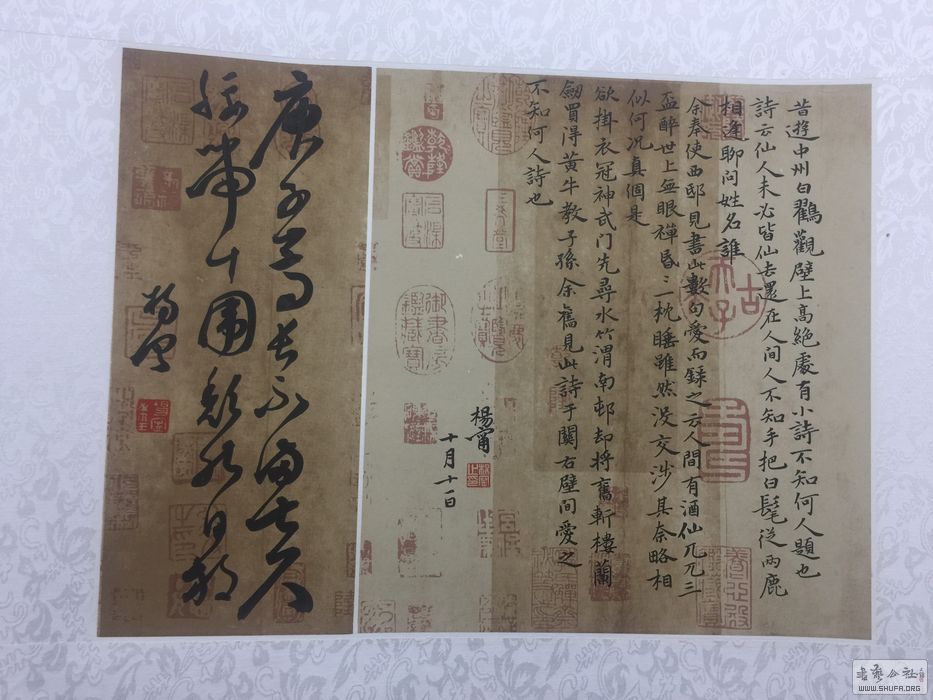 昔遊中州白鶴觀壁上高絕處有小詩不知何人題也
詩云仙人未必皆仙去還在人間人不知手把白髦從兩鹿
相逢聊問姓名誰
余奉使西邸見書此數句愛而錄之云人間有酒仙兀兀三
盃醉世上無眼禪昏〻一枕睡雖然没交涉其奈略相
似何況真個是
欲掛衣冠神武门先尋水竹渭南邨却将舊斬樓蘭
劒買得黄牛教子孫余舊見此詩于關右壁間愛之
不知何人詩也
楊甯
十月十一日
庾子嵩長不滿七尺
腰帶十圍頹然自放
楊甯
書藝公社
WWW.SHUFA.ORG